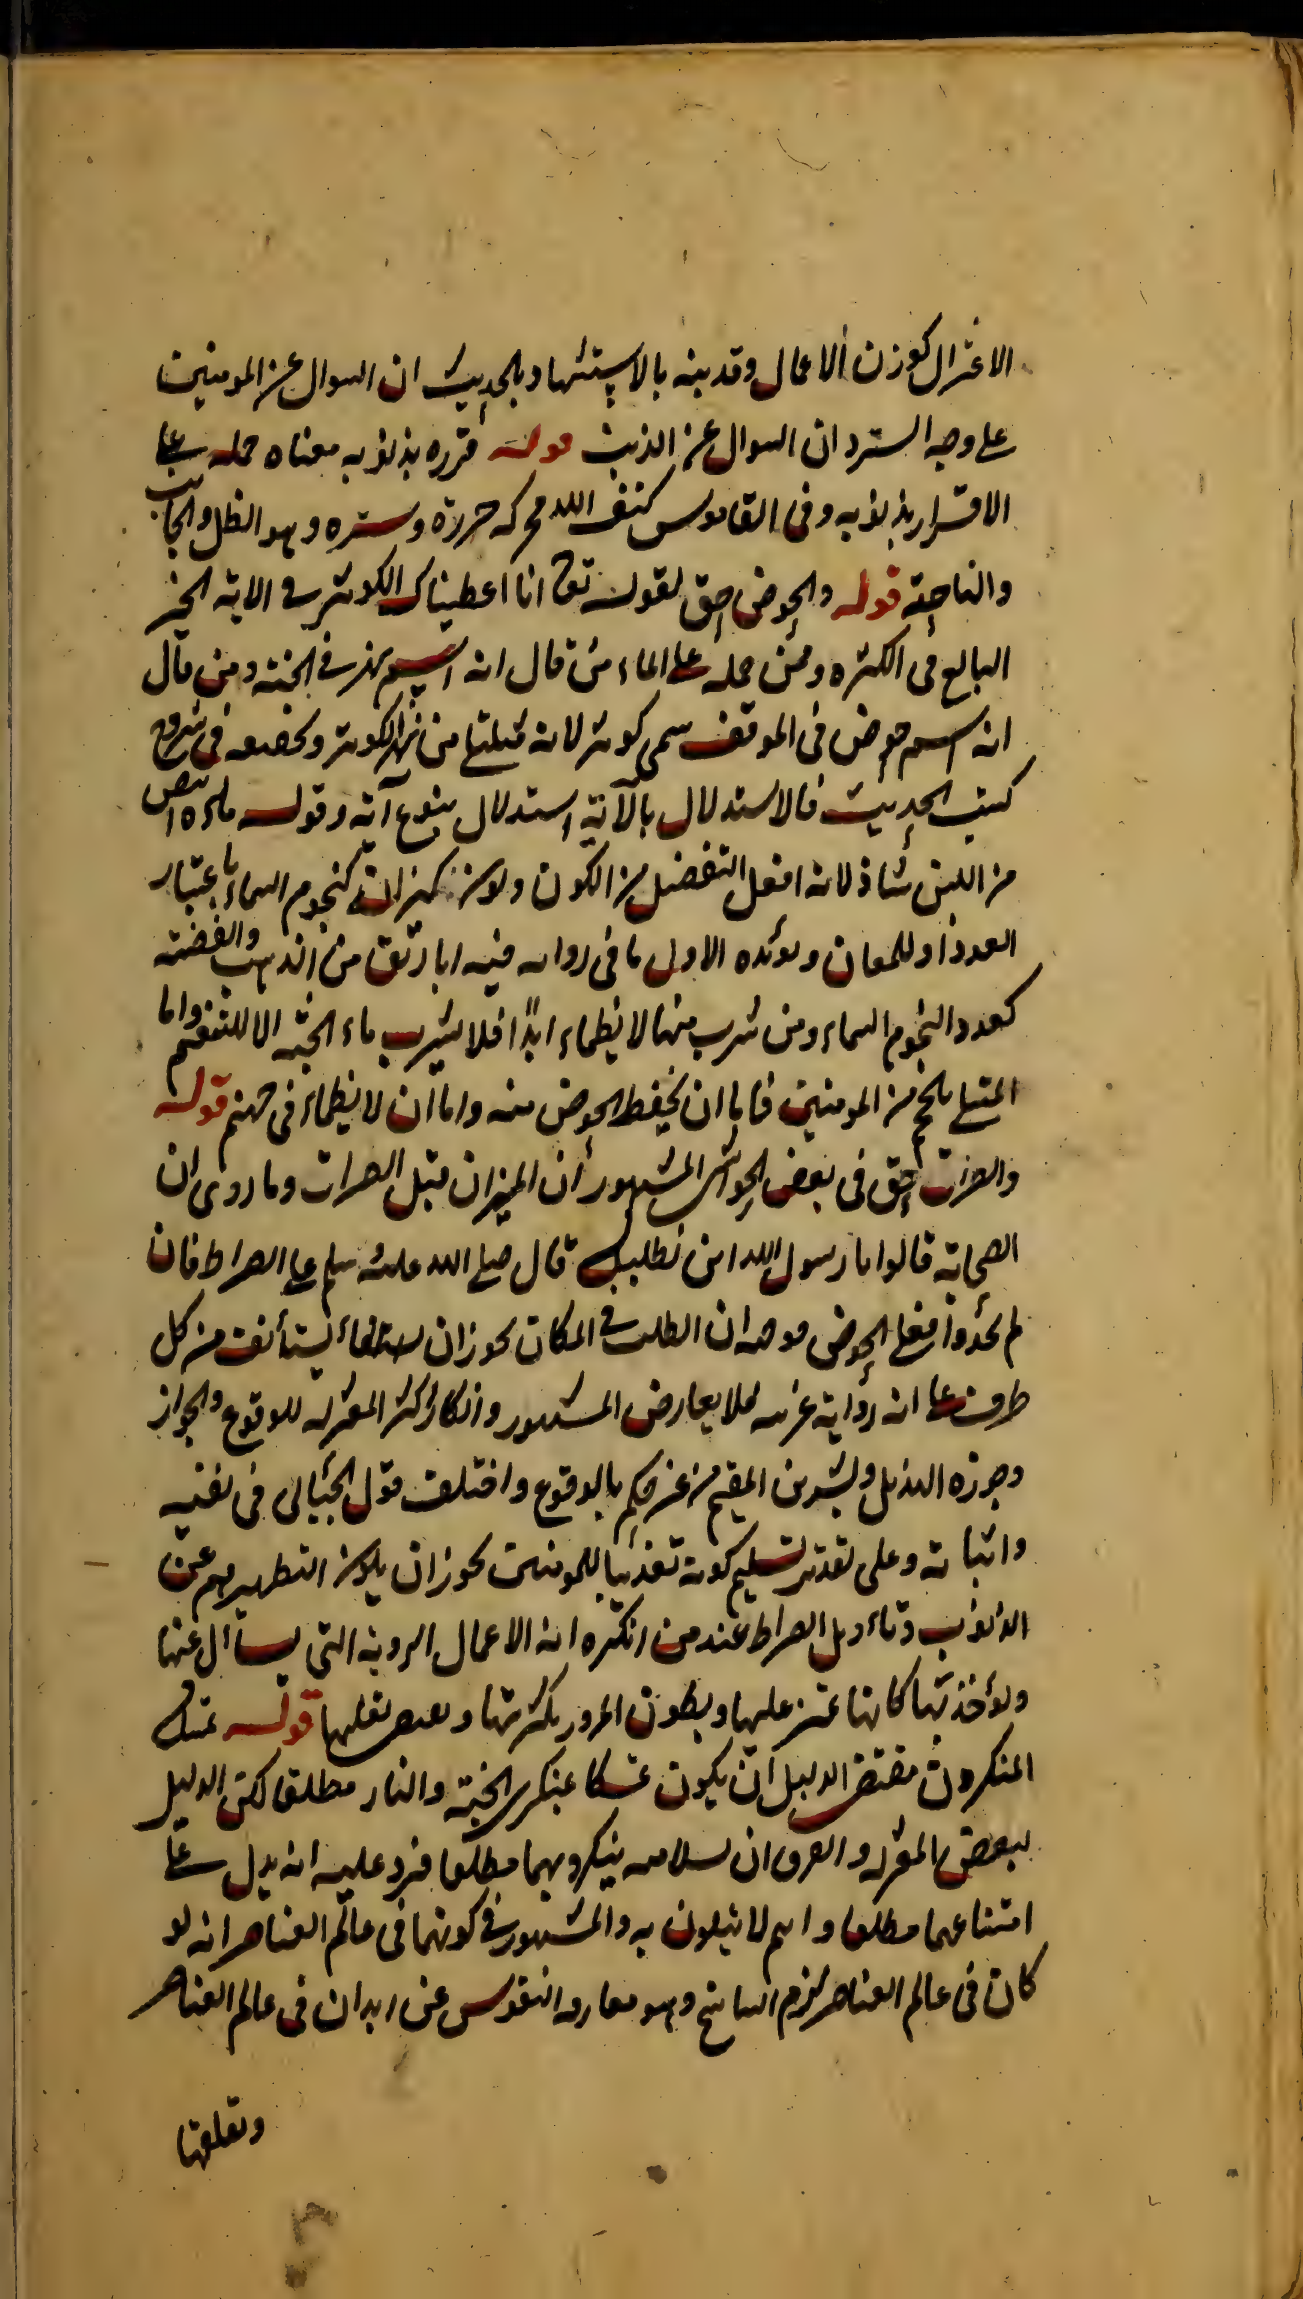 الاعتزال كوزن الاعمال وقد بينه بالاستشهاد بالحديث ان السوال عن المومنين
على وجه الستر دان السوال عن الذنب قوله قرره بذنوبه معناه حمله على
الاقرار بذنوبه وفى القاموس كنف الله محركة حرزه وستره وهو الظل والجانب
والناحية قوله والحوض حق لقوله تع انا اعطيناك الكوثر فى الاية الخير
البالغ فى الكثره وممن حمله على الماء من قال انه اسم نهر فى الجنة ومن قال
انه اسم حوض فى الموقف سمى كوثر لانه من نهر الكوثر فى شروح
كتب الحديث فالاستدلال بالآية استدلال بنوع آية وقوله ماءه ابيض
من اللبن شاذ لانه افعل التفضيل من اللون كيزانه كنجوم السماء باعتبار
العدد او للمعان ويؤيده الاول ما فى روايه فيه اباريق من الذهب والفضة
كعدد النجوم السماء ومن شرب منها لا يظماء ابدًا فلا يشرب ماء الجنة الا للتنعم واما
من المومنين فاما ان يحفظ الحوض منه واما ان لا يظماء فى جهنم قوله
والصراط حق فى بعض الحواشى المشهور ان الميزان قبل الصراط وما روى ان
الصحابة قالوا يا رسول الله اين نطلبك قال صلى الله عليه وسلم على الصراط فان
لم تجدوا فعلى الحوض ان الطلب فى المكان يجوز ان يستأنف من كل
طرف على انه رواية غريبه فلا يعارض المشهور وانكار اكثر المعتزله للوقوع والجواز
وجوزه الهذيل وبشر بن المعتمر من غير حكم بالوقوع واختلف قول الجبائى فى نفيه
واثباته وعلى تقدير تسليم كونه تعذيبا للمومنين يجوز ان يكون التطهيرهم عن
الذنوب وتاءويل الصراط عند من انكره انه الاعمال الردية التى يسأل عنها
ويؤخذ بها كانها تمر عليها ويطول المرور بكثرتها ويقصر بقلتها قوله تمسك
المنكرون مقتضى الدليل ان يكون تمسكا لمنكرى الجنة والنار مطلقا لكن الدليل
لبعض المعتزله والفرق ان ينكرونهما مطلقا فيرد عليه انه يدل على
امتناعهما مطلقا وانهم لا يقولون به والمشهور فى كونهما فى عالم العناصر انه لو
كان فى عالم العناصر لزم التناسخ وهو مفارقه النفوس عن ابدان فى عالم العناصر
وتعلقها